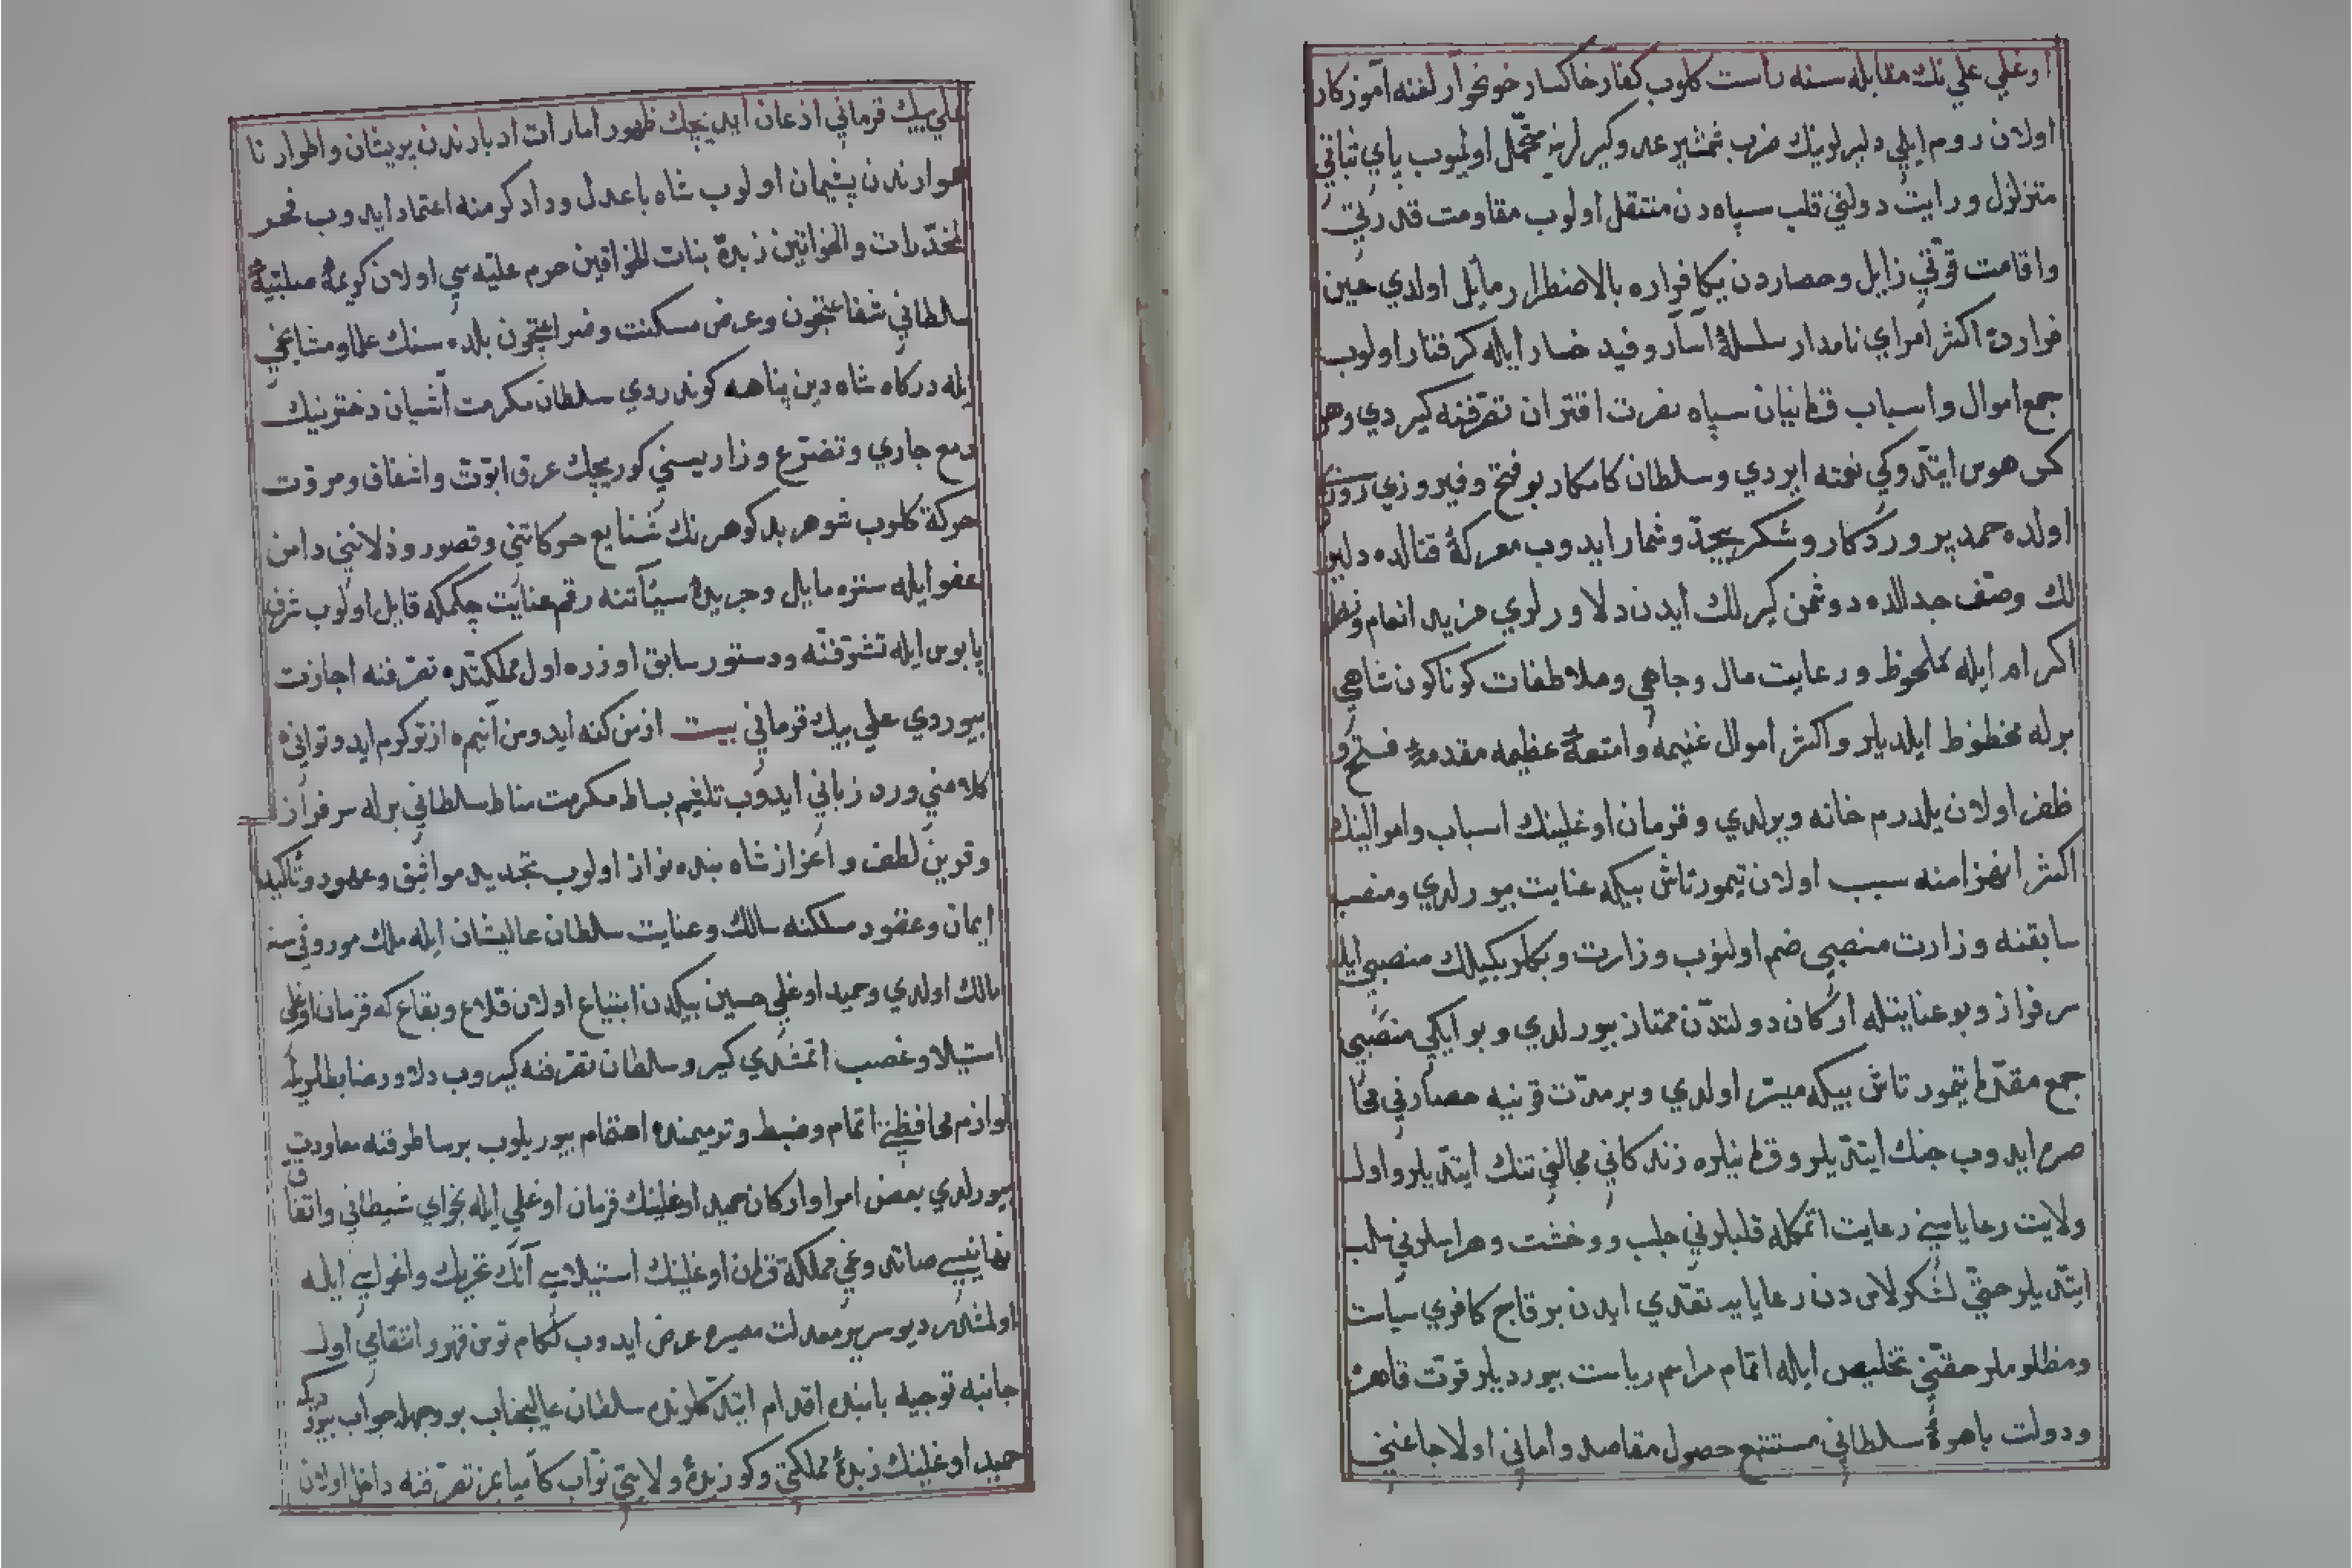 اوغلي علي نك مقابله سنه راست كلوب كفار خاكسار خونخوار لفته آموزكار
اولان روم ايلي دليرلرينك ضرب شمشير عدوكيرلرينه متحمل اوليوب پاي ثباتي
متزلزل ورايت دولتي قلب سپاه دن منتقل اولوب مقاومت قدرتي
واقامت قوتي زايل وحصاردن يكا فراره بالاضطرار مايل اولدي حين
فراردة اكثر امراي نامدار سلسلۀ آسار وقيد خسار ايله كرفتار اولوب
جمع اموال واسباب قرمانيان سپاه نصرت اقتران تصرفنه كيردي وهر
كس هوس ايتدوكي نعمته ايردي وسلطان كامكار بو فتح وفيروزي روزي
اولده حمد پروردكار وشكر بيحد وشمار ايدوب معركۀ قتالده دلير
لك وصف جدالده دوشمن كيرلك ايدن دلاورلري مزيد انعام و
اكرام ايله ملحوظ ورعايت مال وجاهي وملاطفات كوناكون شاهي
برله محظوظ ايلديلر واكثر اموال غنيمه وامتعۀ عظيمه مقدمۀ فتح و
ظفر اولان يلدرم خانه ويرلدي وقرمان اوغلينك اسباب واموالينك
اكثر انهزامنه سبب اولان تيمورتاش بيكه عنايت بيورلدي ومنصب
سابقنه وزارت منصبي ضم اولنوب وزارت وبكلربكيلك منصبي ايله
سرفراز وبو عنايتله اركان دولتدن ممتاز بيورلدي وبو ايكي منصبي
جمع مقدما تيمور تاش بيكه ميسر اولدي وبر مدت قونيه حصارني محا
صره ايدوب جنك ايتديلر وقرمانيلره زندكاني مجالني تنك ايتديلر واول
ولايت رعاياسني رعايت اتمكله قلبلرني جلب ووخشت وهراسلرني سلب
ايتديلر حتى لشكرلاس دن رعايايه تعدي ايدن بر قاچ كافري سياست
ومظلوملر حقني تخليص ايله اتمام مراسم رياست بيورديلر قوت قاهرۀ
ودولت باهرۀ سلطاني مستتبع حصول مقاصد واماني اولاجاغني
علي بيك قرماني اذعان ايديجك ظهور امارات ادبارندن پريشان واطوار نا
هموارندن پشيمان اولوب شاه باعدل وداد كرمنه اعتماد ايدوب فخر
المخدرات والخواتين زبدۀ بنات الخواقين حرم عليه سي اولان كريمۀ صلبيۀ
سلطاني شفاعتچون وعرض مسكنت وضراعتچون بلده سنك علما ومشايخي
ايله دركاه شاه دين پناهه كوندردي سلطان مكرمت آشيان دخترينك
دمع جاري وتضرع وزاريسني كوريجك عرق ابوت واشفاق ومروت
حركة كلوب شوهر بد كوهرنك شنايع حركاتني وقصور وذلاتني دامن
عفو ايله ستره مايل وجريدۀ سيئآتنه رقم عنايت چكمكه قابل اولوب شرف
پابوس ايله تشرفنه ودستور سابق اوزره اول مملكتده تصرفنه اجازت
بيوردي علي بيك قرماني بيت از من كنه ايد ومن آنيم ٥ از تو كرم ايد وتواني ٥
كلامني ورد زباني ايدوب تلثيم بساط مكرمت مناط سلطاني برله سرفراز
وقرين لطف واعزاز شاه بنده نواز اولوب تجديد مواثيق وعهود وتاكيد
ايمان وعقود مسلكنه سالك وعنايت سلطان عاليشان ايله ملك موروثي سنه
مالك اولدي وحميد اوغلي حسين بيكدن ابتياع اولان قلاع وبقاع كه قرمان اوغلي
استيلا وغصب اتمشدي كيرو سلطان تصرفنه كيروب دلاور ضابطلريله
لوازم محافظه‌ني اتمام وضبط وترميمنده اهتمام بيوريلوب برسا طرفنه معاودت
بيورلدي بعض امرا واركان حميد اوغلينك قرمان اوغلي ايله نجواي شيطاني واتفاق
نفانيسي صاتدوغي مملكة قرمان اوغلينك استيلاسي آنك تحريك واغواسي ايله
اولمشدر ديو سرير معدلت مصيره عرض ايدوب لكام توسن قهر وانتقامي اول
جانبه توجيه بابنده اقدام ايتدكلرنده سلطان عاليجناب بو وجهله جواب بيورديكه
حميد اوغلينك زبدۀ مملكتي وكوزيدۀ ولايتي نواب كامياب‌مز تصرفنه داخل اولان